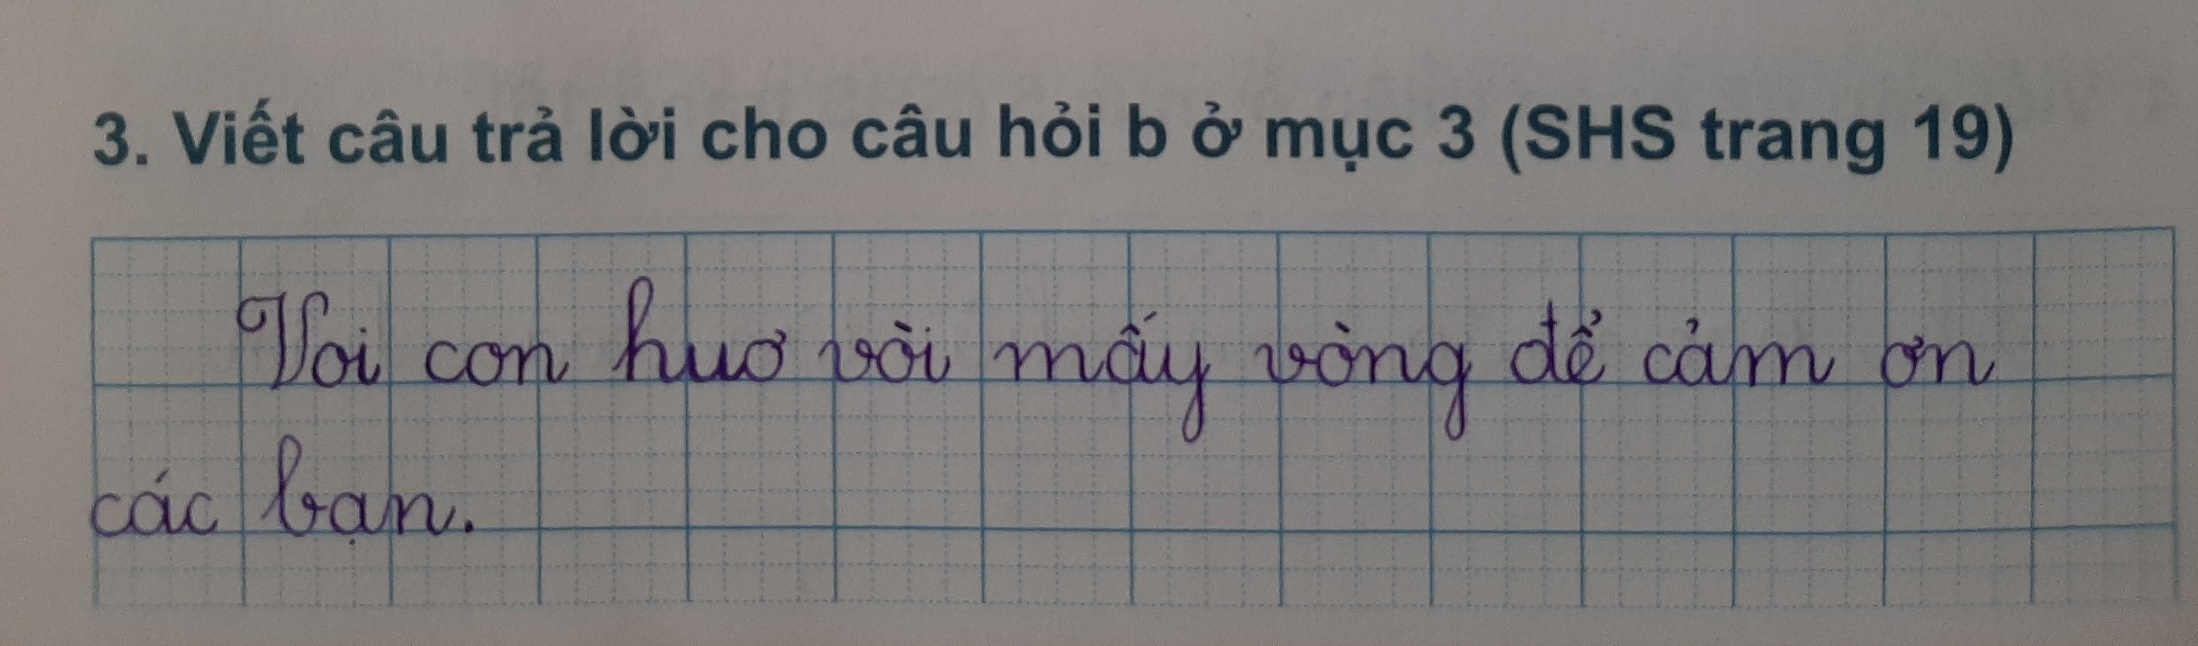 3. Viết câu trả lời cho câu hỏi b ở mục 3 (SHS trang 19)
Voi con huơ vòi mấy vòng để cảm ơn
các bạn.